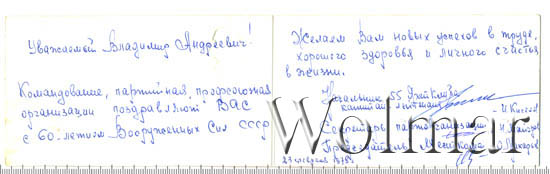 Уважаемый Владимир Андреевич!
Командование, партийная, профсоюзная
организации поздравляют ВАС
с 60-летием Вооруженных Сил СССР
Желаем Вам новых успехов в труде,
хорошего здоровья и личного счастья
в жизни.
Начальник 55
капитан-лейтенант
Секретарь парторганизации
Председатель Месткома
23 февраля 1978
Wolmar